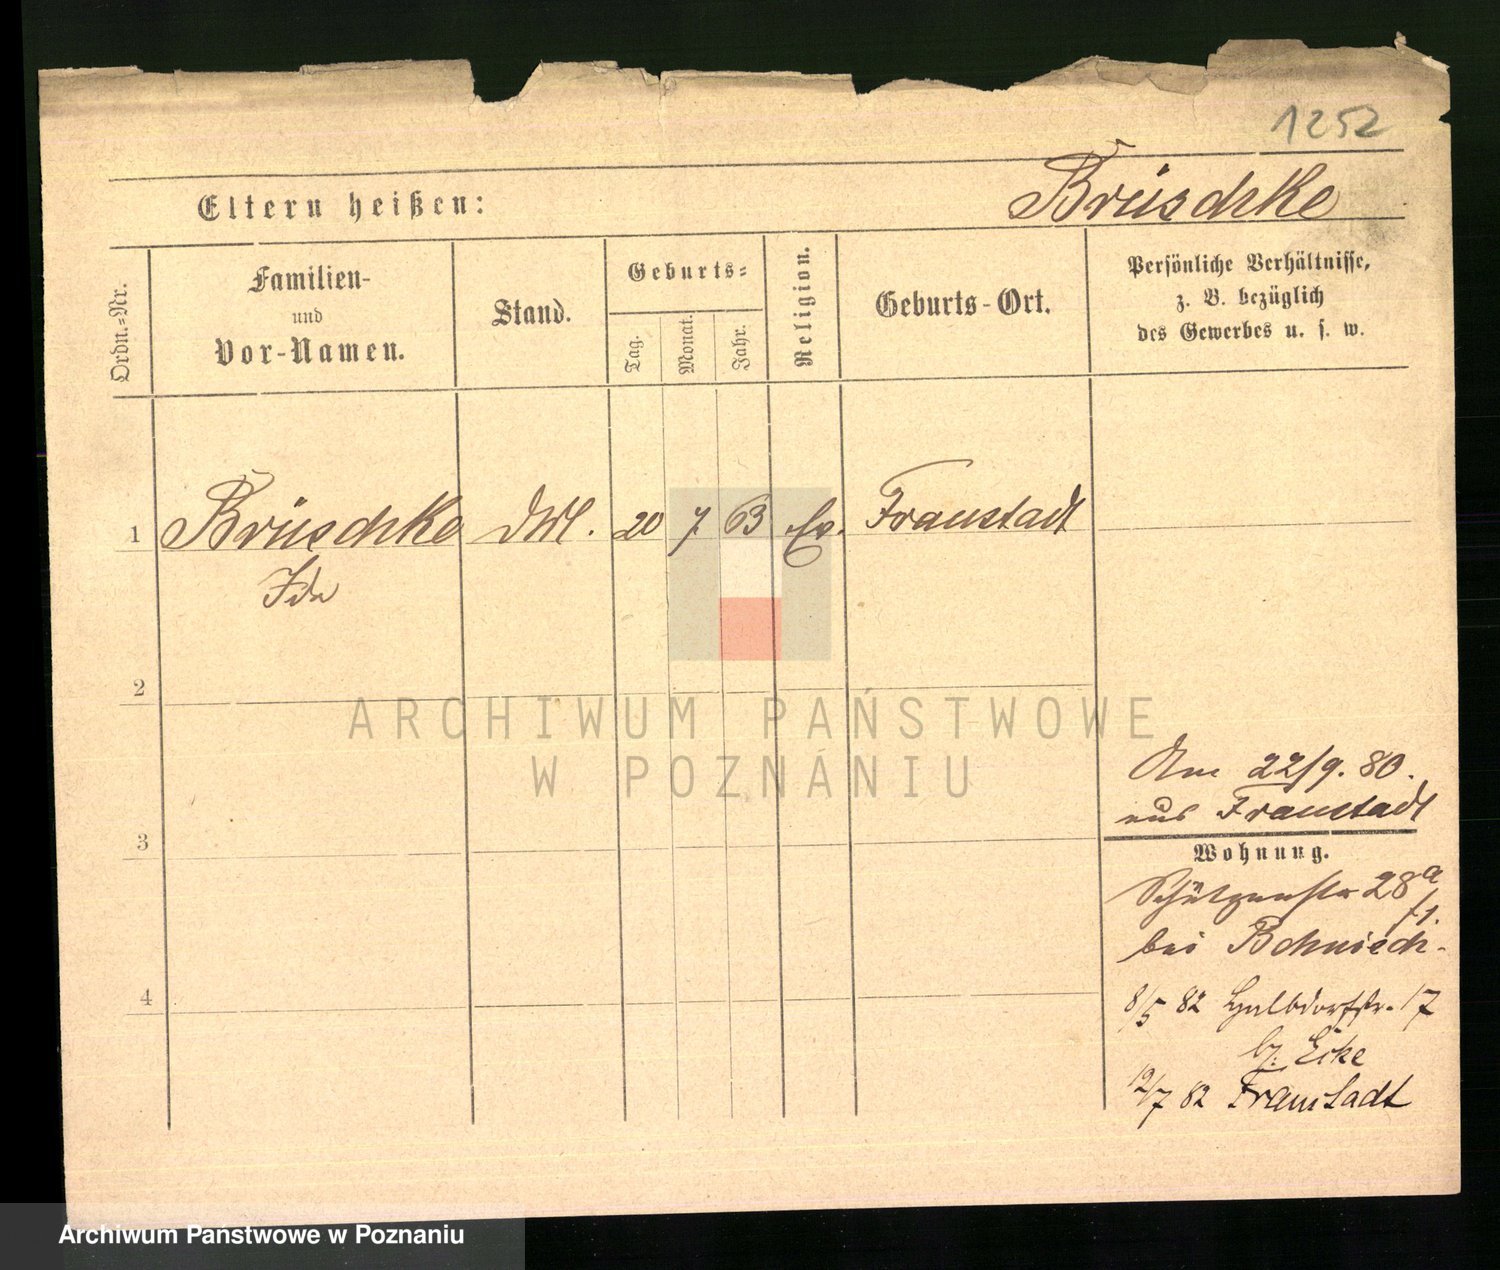 1252
Brüschke
Eltern heißen:
Ordn.=Nr.
Familien-
und
Vor-Namen.
Stand.
Geburts=
Tag.
Monat.
Jahr.
Religion.
Geburts-Ort.
Persönliche Verhältnisse,
z. B. bezüglich
des Gewerbes u. s. w.
1 Brüschke 20 7 63 Ev. Fraustadt
Ida
2
ARCHIWUM PAŃSTWOWE
W POZNANIU
3
4
Am 22/9. 80.
aus Fraustadt
Wohnung.
Schützenstr 28a
bei
8/5 82 Halbdorfstr. 17
b. Ecke
12/7 82 Fraustadt
Archiwum Państwowe w Poznaniu